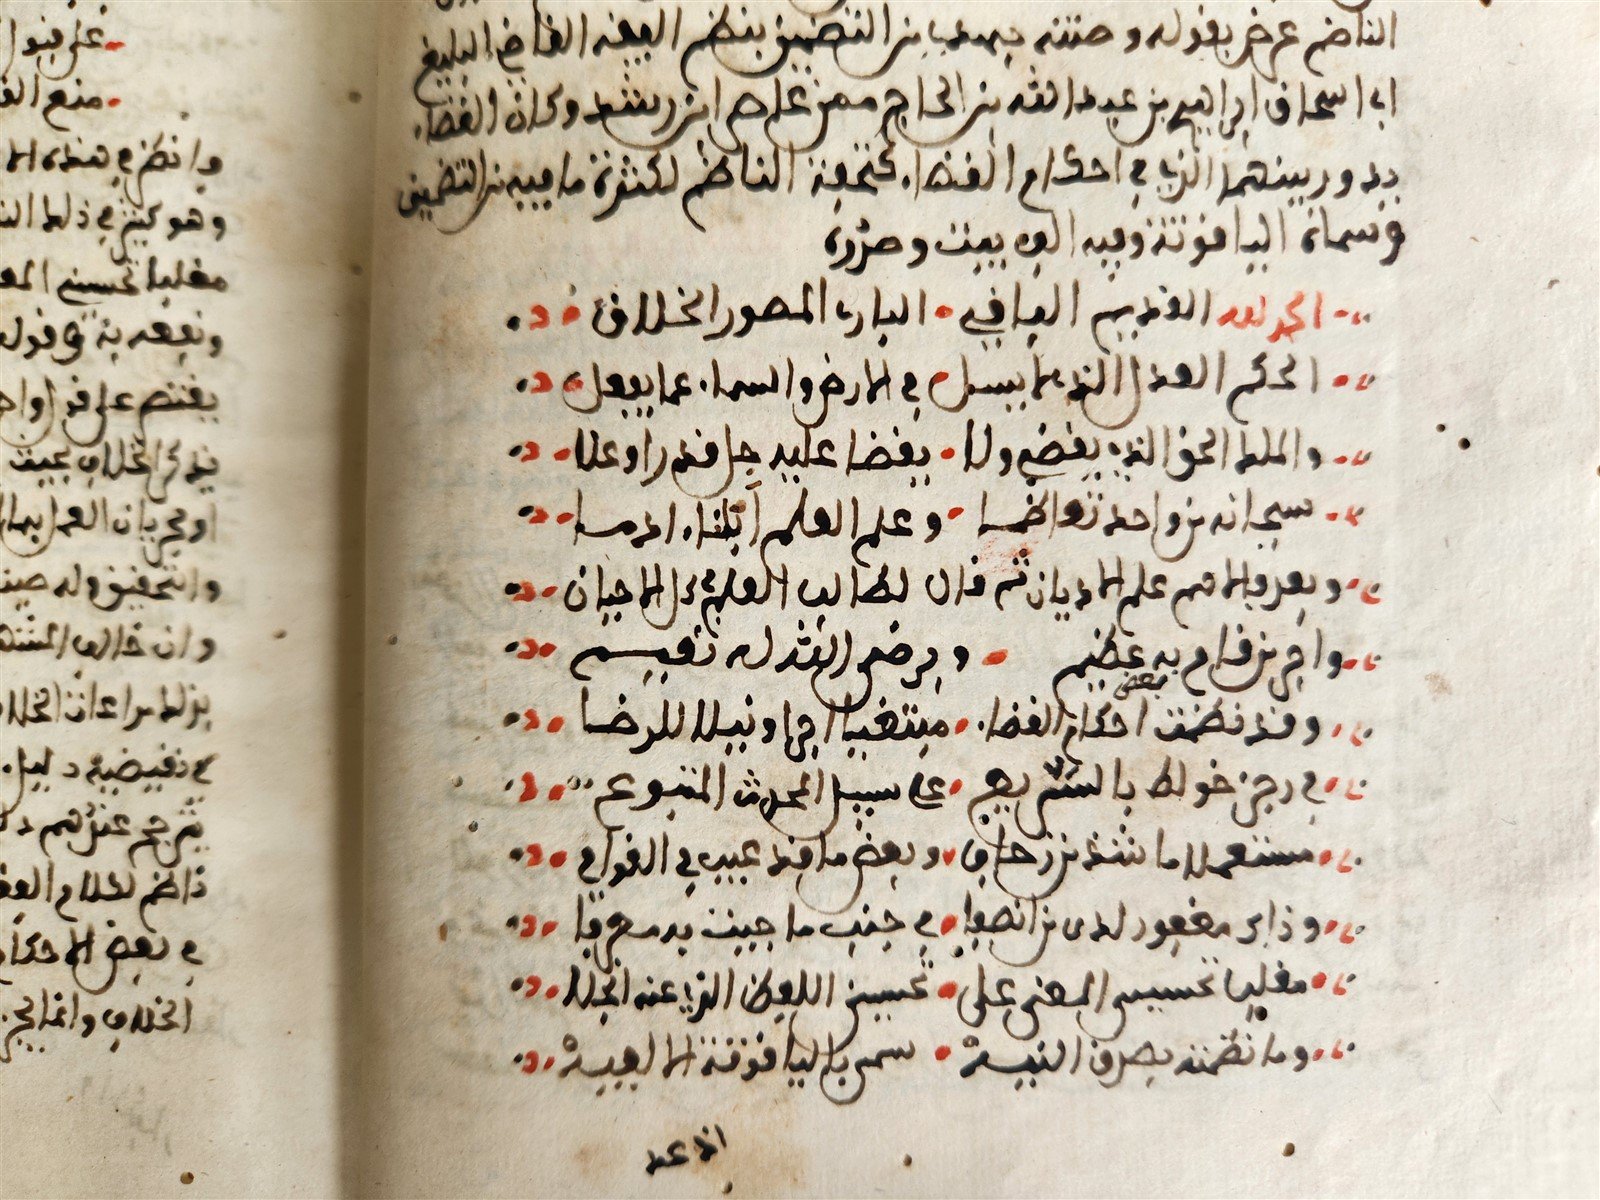 الناظم عرض بقوله وضمنه جملة من التضمين بنظم الفقيه القاضي البليغ
ابا اسحاق ابراهيم بن عبد الله بن الحاج ممن علم ابن رشد وكان القضاء
يدور بينهما الذي في احكام القضاء لكثرة ما فيه من التضمين
وسماه الياقوتة وفيه الف بيت وصدره
الحمد لله القديم الباقي البارئ المصور الخلاق
الحكم العدل الذي لا يسل في الارض والسماء عما يفعل
والملك الحق الذي يقضي ولا يقضا عليه جل قدرا وعلا
سبحانه من واحد تعاظما وعلم العلم ابتداء ادما
وبعد فالاهم علم الاديان ثم فان لطالب العلم كل الاحيان
واجر من قام به عظيم وفرض الله له تقسيم
وقد نظمت بعض احكام القضاء مبتغيا اجرا ونيلا للرضا
في رجز خولط بالسريع على سبيل المحدث المتبوع
مستعملا ما شذ من زحاف وبعض ما قد عيب في القوافي
وذاك مغفور لدى من انصفا في جنب ما جيت به معرفا
مغلبا تحسين المعنى على تحسين اللفظ الذي عنه انجلا
وما نظمته بصدق النيه سمي بالياقوتة الالفيه
اذ عد
على قبول
منع
وانظر في هذه الا
وهو كثير في ذلك
مغلبا تحسين المعنى
في قوله
يقتصر على قول واحد
يذكر الخلاف بحيث
او يجري ان العمل بما
والتحقيق وله
وان خالف المشهور
من ذلك مراعات الخلاف
في نقيضه دليل
ناظم لكلام
في بعض الاحكام
الخلاف وانما يجري